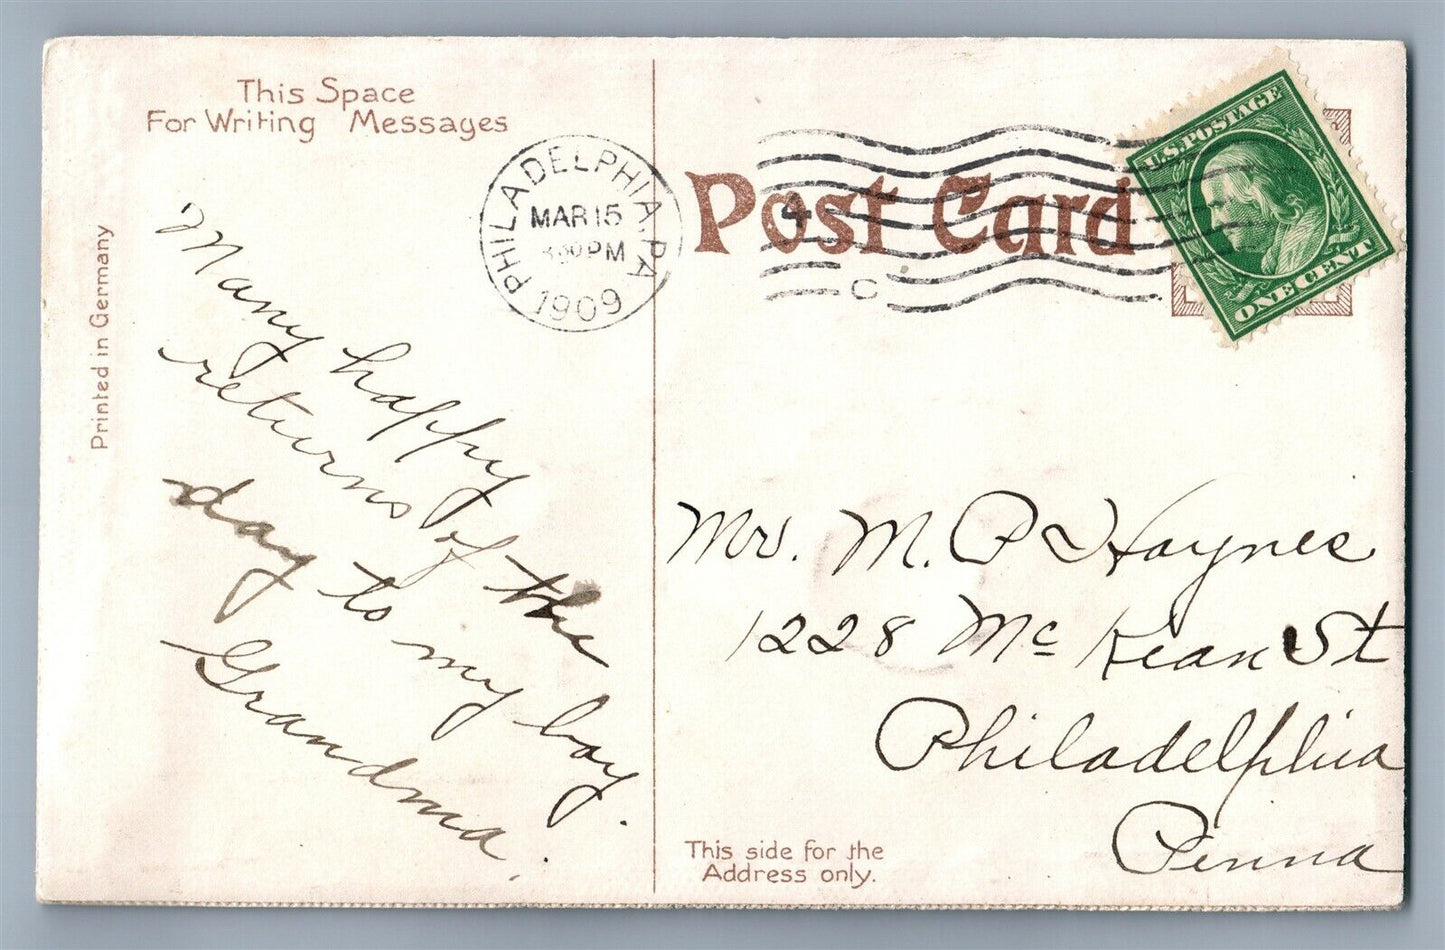 This Space
For Writing Messages
Printed in Germany
Many happy
returns of the
day to my boy.
Grandma.
PHILADELPHIA, PA.
MAR 15
PM
1909
4
C
Post Card
U.S. POSTAGE
ONE CENT
Mr. M. P. Haynes
1228 McKean St
Philadelphia
Penna
This side for the
Address only.